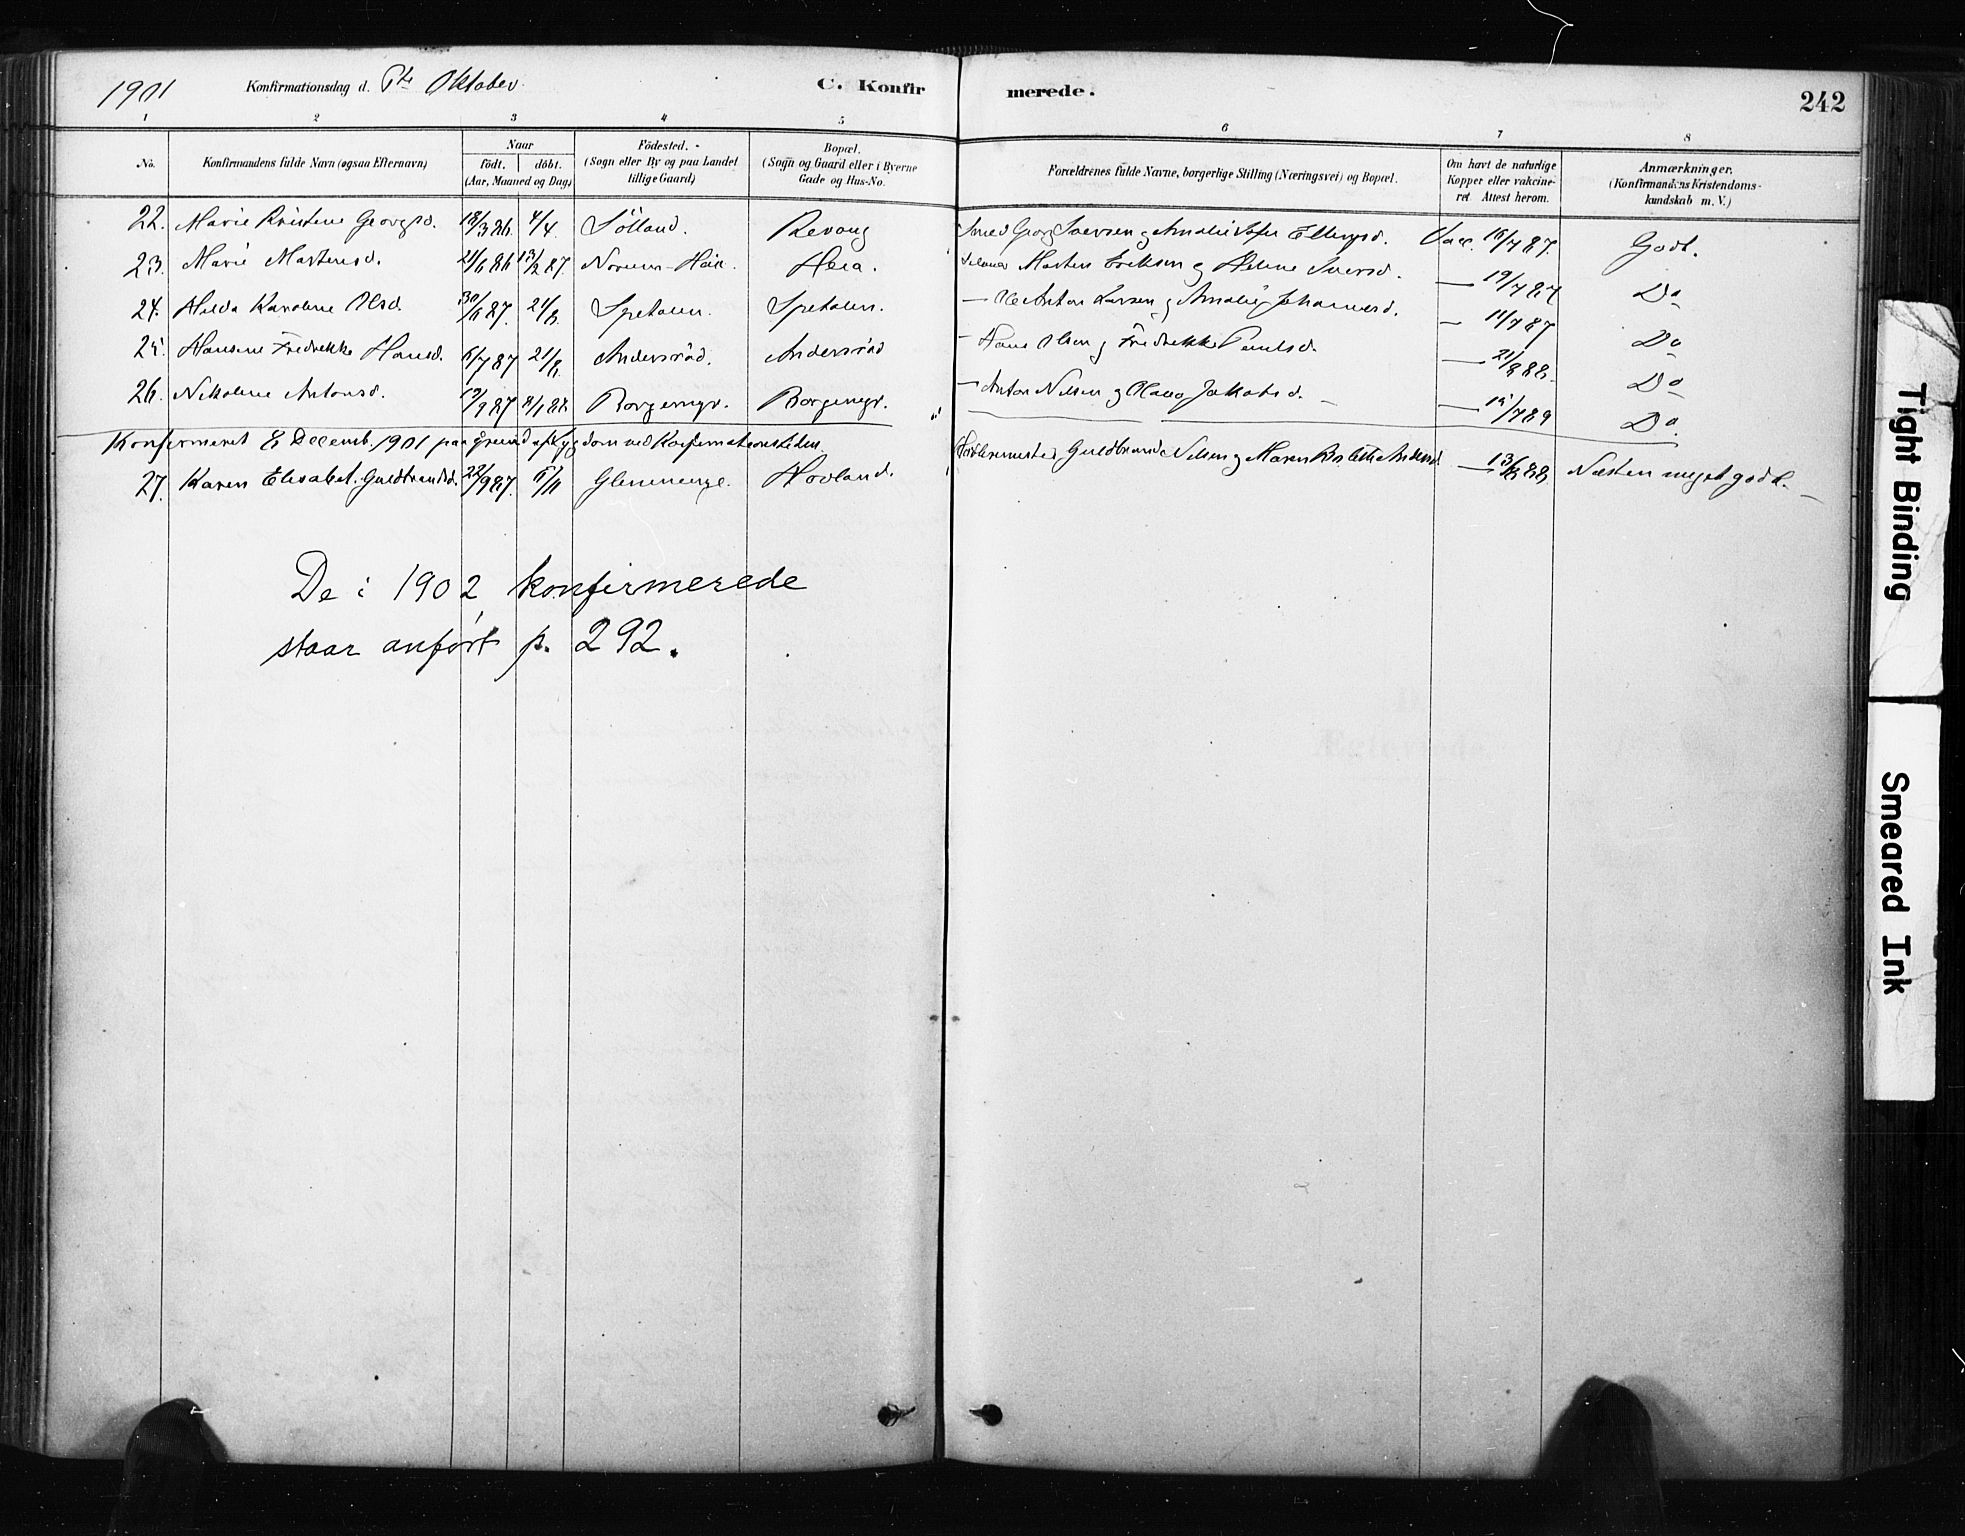 1901 Konfirmationsdag d. Oktober. C. Konfirmerede. 242
1 2 3 4 5 6 7 8
No. Konfirmandens fulde Navn (ogsaa Efternavn) Naar født. døbt. (Aar, Maaned og Dag) Födested. (Sogn eller By og paa Landet tillige Gaard) Bopæl. (Sogn og Gaard eller i Byerne Gade og Hus-No. Forældrenes fulde Navne, borgerlige Stilling (Næringsvei) og Bopæl. Om havt de naturlige Kopper eller vakcineret. Attest herom. Anmærkninger. (Konfirmandens Kristendomskundskab m. V.)
22. Marie Kristine Georgsd. 18/3 86. 4/4. Sölland. Revoug Smed Georg Iversen og Amalie Ellingsd. Vacc. 16/7 87. Godt.
23. Marie Martensd. 21/6 86 13/2 87. Norum- Heia. Marten Eriksen og Helene Iversd. — 19/7 87 Do
24. Hilda Karoline Olsd. 30/6 87. 21/8. Spetalen. Spetalen. — Ole Anton Larsen og Amalie Johannesd. — 11/7 87 Do
25. Hansine Fredrekke Hansd. 6/7 87 21/8. Andersröd. Andersröd — Hans Olsen og Fredrekke Paulsd. — 21/8 88. Do
26. Nikoline Antonsd. 19/9 87 8/1 88. Borgemyr. Borgemyr. — Anton Nilsen og Olava Jakobsd. — 15/7 89 Do.
Konfirmeret 8 Decemb. 1901 paa Grund af Sygdom ved Konfirmationstiden.
27. Karen Elisabet. Guldbrandsd. 22/9 87. 6/11 Glemminge. Hovland. Guldbrand Nilsen og Maren Andersd. — 13/8 88 Næsten meget godt. —
De i 1902 konfirmerede
staar anført p. 292.
Tight Binding
Smeared Ink